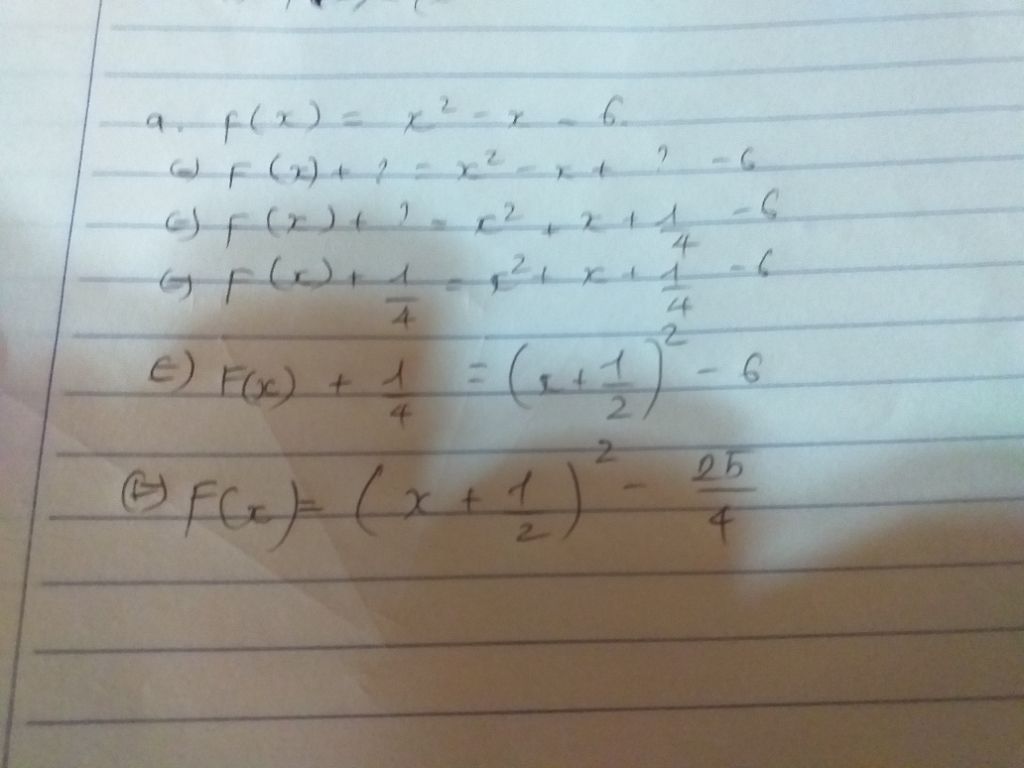 a. f(x) = x² - x - 6
(=) F(x) + ? = x² - x + ? - 6
(=) f(x) + ? = x² + x + 1/4 - 6
(=) F(x) + 1/4 = x² + x + 1/4 - 6
(=) F(x) + 1/4 = (x + 1/2)² - 6
(=) F(x) = (x + 1/2)² - 25/4